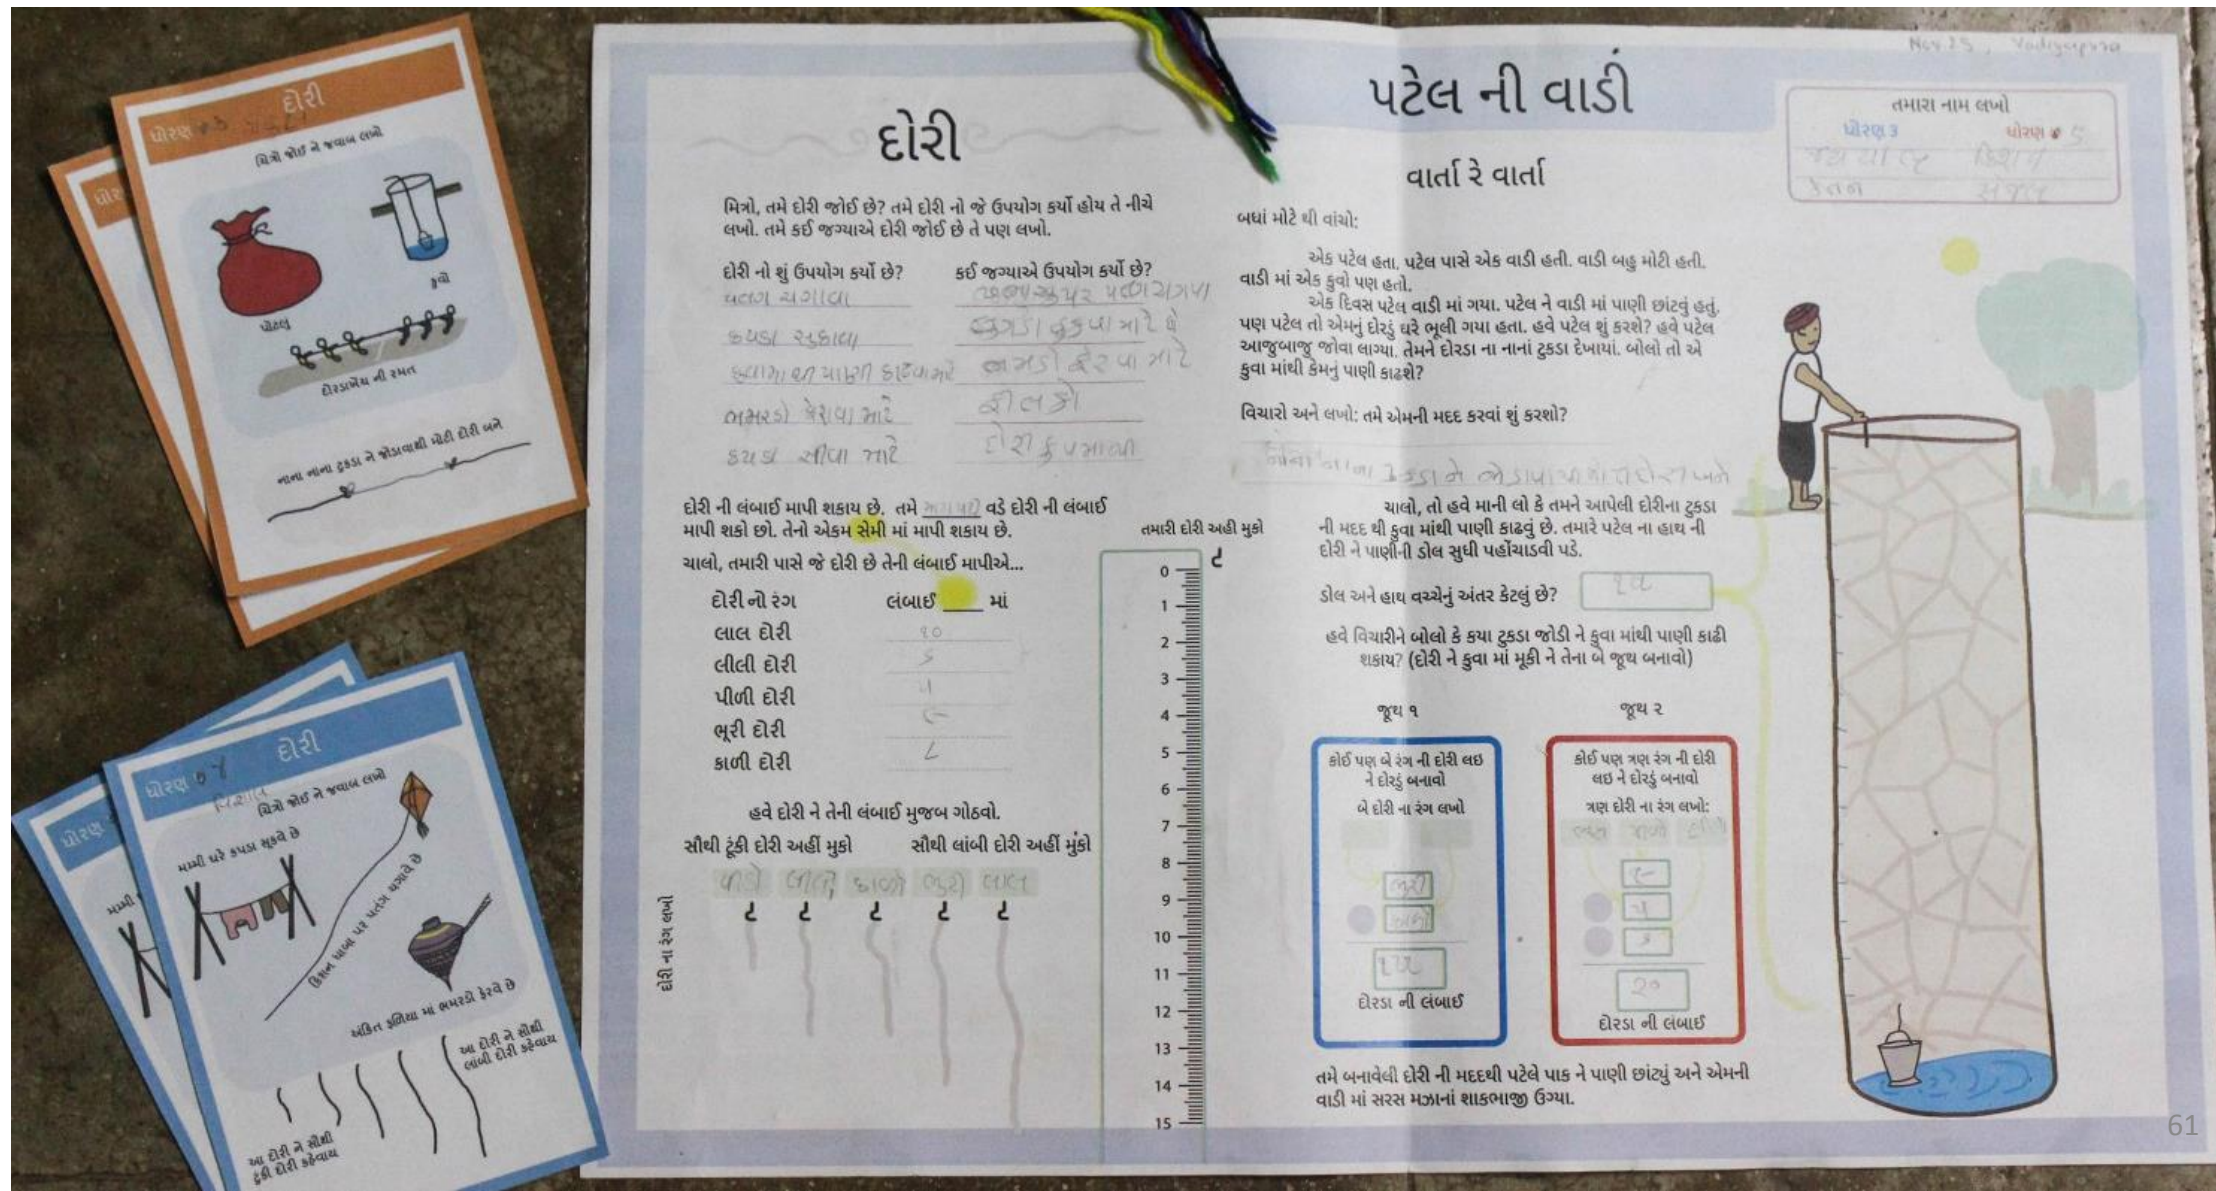 દોરી
ધોરણ
ચિત્રો જોઈ ને જવાબ લખો
પોટલું
કુવો
દોરડાખેંચ ની રમત
નાના નાના ટુકડા ને જોડાવાથી મોટી દોરી બને
ધોરણ
દોરી
ચિત્રો જોઈ ને જવાબ લખો
મમ્મી ઘરે કપડા સૂકવે છે
કિશન ધાબા પર પતંગ ચગાવે છે
અંકિત ફળિયા માં ભમરડો ફેરવે છે
આ દોરી ને સૌથી
લાંબી દોરી કહેવાય
આ દોરી ને સૌથી
ટુંકી દોરી કહેવાય
દોરી
મિત્રો, તમે દોરી જોઈ છે? તમે દોરી નો જે ઉપયોગ કર્યો હોય તે નીચે
લખો. તમે કઈ જગ્યાએ દોરી જોઈ છે તે પણ લખો.
દોરી નો શું ઉપયોગ કર્યો છે? કઈ જગ્યાએ ઉપયોગ કર્યો છે?
દોરી ની લંબાઈ માપી શકાય છે. તમે વડે દોરી ની લંબાઈ
માપી શકો છો. તેનો એકમ સેમી માં માપી શકાય છે.
ચાલો, તમારી પાસે જે દોરી છે તેની લંબાઈ માપીએ...
દોરી નો રંગ લંબાઈ ____ માં
લાલ દોરી ૧૦
લીલી દોરી
પીળી દોરી ૫
ભૂરી દોરી ૯
કાળી દોરી ૮
હવે દોરી ને તેની લંબાઈ મુજબ ગોઠવો.
સૌથી ટૂંકી દોરી અહીં મુકો સૌથી લાંબી દોરી અહીં મુંકો
દોરી ના રંગ લખો
તમારી દોરી અહી મુકો
0
1
2
3
4
5
6
7
8
9
10
11
12
13
14
15
પટેલ ની વાડી
Nov 25, Vadiyapura
તમારા નામ લખો
ધોરણ 3 ધોરણ 5
વાર્તા રે વાર્તા
બધાં મોટે થી વાંચો:
એક પટેલ હતા. પટેલ પાસે એક વાડી હતી. વાડી બહુ મોટી હતી.
વાડી માં એક કુવો પણ હતો.
એક દિવસ પટેલ વાડી માં ગયા. પટેલ ને વાડી માં પાણી છાંટવું હતું.
પણ પટેલ તો એમનું દોરડું ઘરે ભૂલી ગયા હતા. હવે પટેલ શું કરશે? હવે પટેલ
આજુબાજુ જોવા લાગ્યા. તેમને દોરડા ના નાનાં ટુકડા દેખાયાં. બોલો તો એ
કુવા માંથી કેમનું પાણી કાઢશે?
વિચારો અને લખો: તમે એમની મદદ કરવાં શું કરશો?
ચાલો, તો હવે માની લો કે તમને આપેલી દોરીના ટુકડા
ની મદદ થી કુવા માંથી પાણી કાઢવું છે. તમારે પટેલ ના હાથ ની
દોરી ને પાણીની ડોલ સુધી પહોંચાડવી પડે.
ડોલ અને હાથ વચ્ચેનું અંતર કેટલું છે?
હવે વિચારીને બોલો કે કયા ટુકડા જોડી ને કુવા માંથી પાણી કાઢી
શકાય? (દોરી ને કુવા માં મૂકી ને તેના બે જૂથ બનાવો)
જૂથ ૧
કોઈ પણ બે રંગ ની દોરી લઇ
ને દોરડું બનાવો
બે દોરી ના રંગ લખો
દોરડા ની લંબાઈ
જૂથ ૨
કોઈ પણ ત્રણ રંગ ની દોરી
લઇ ને દોરડું બનાવો
ત્રણ દોરી ના રંગ લખો:
૯
૫
૨૦
દોરડા ની લંબાઈ
તમે બનાવેલી દોરી ની મદદથી પટેલે પાક ને પાણી છાંટ્યું અને એમની
વાડી માં સરસ મઝાનાં શાકભાજી ઉગ્યા.
61